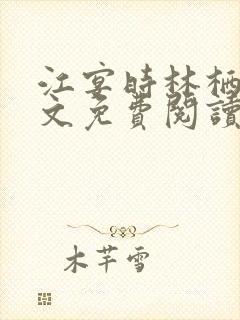 江宴時林栖
文免費閱讀
木芊雪